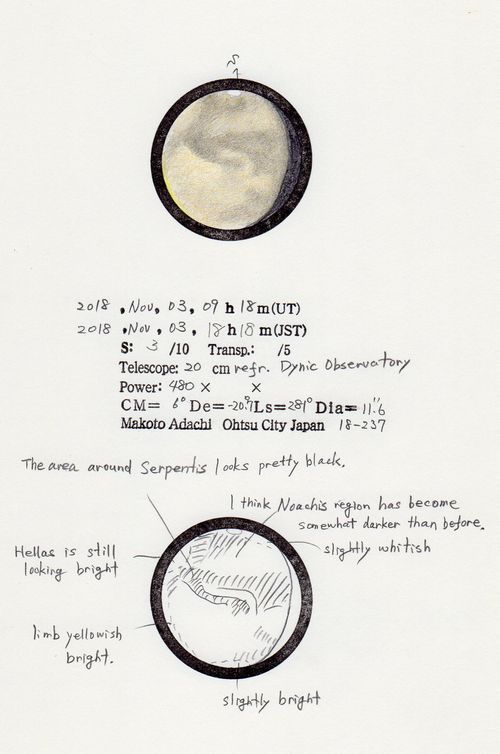 S
2018 . Nov. 03, 09 h 18 m (UT)
2018 . Nov. 03, 18 h 18 m (JST)
S: 3 /10 Transp.: /5
Telescope: 20 cm refr. Dynic Observatory
Power: 480 × ×
CM= 6° De= -20.9° Ls= 281° Dia= 11.6"
Makoto Adachi Ohtsu City Japan 18-237
The area around Serpentis looks pretty black.
I think Noachis region has become
somewhat darker than before.
Hellas is still
looking bright
slightly whitish
limb yellowish
bright.
slightly bright